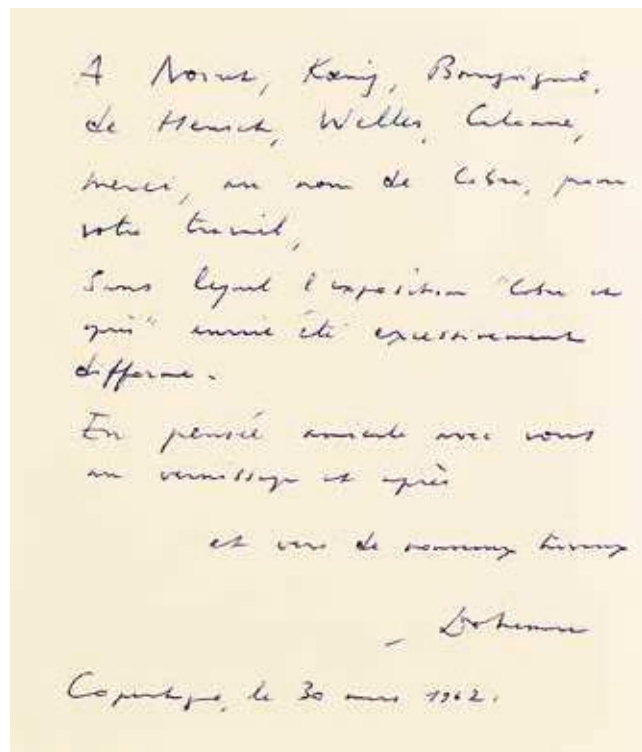 A Noiret, Kœnig, Bourgoignie,
de Heusch, Welles, Calonne,
merci, au nom de Cobra, pour
votre travail,
Sans lequel l'exposition "Cobra et
après" aurait été excessivement
difforme.
En pensée amicale avec vous
au vernissage et après
et vers de nouveaux travaux
Dotremont
Copenhague, le 30 mars 1962.